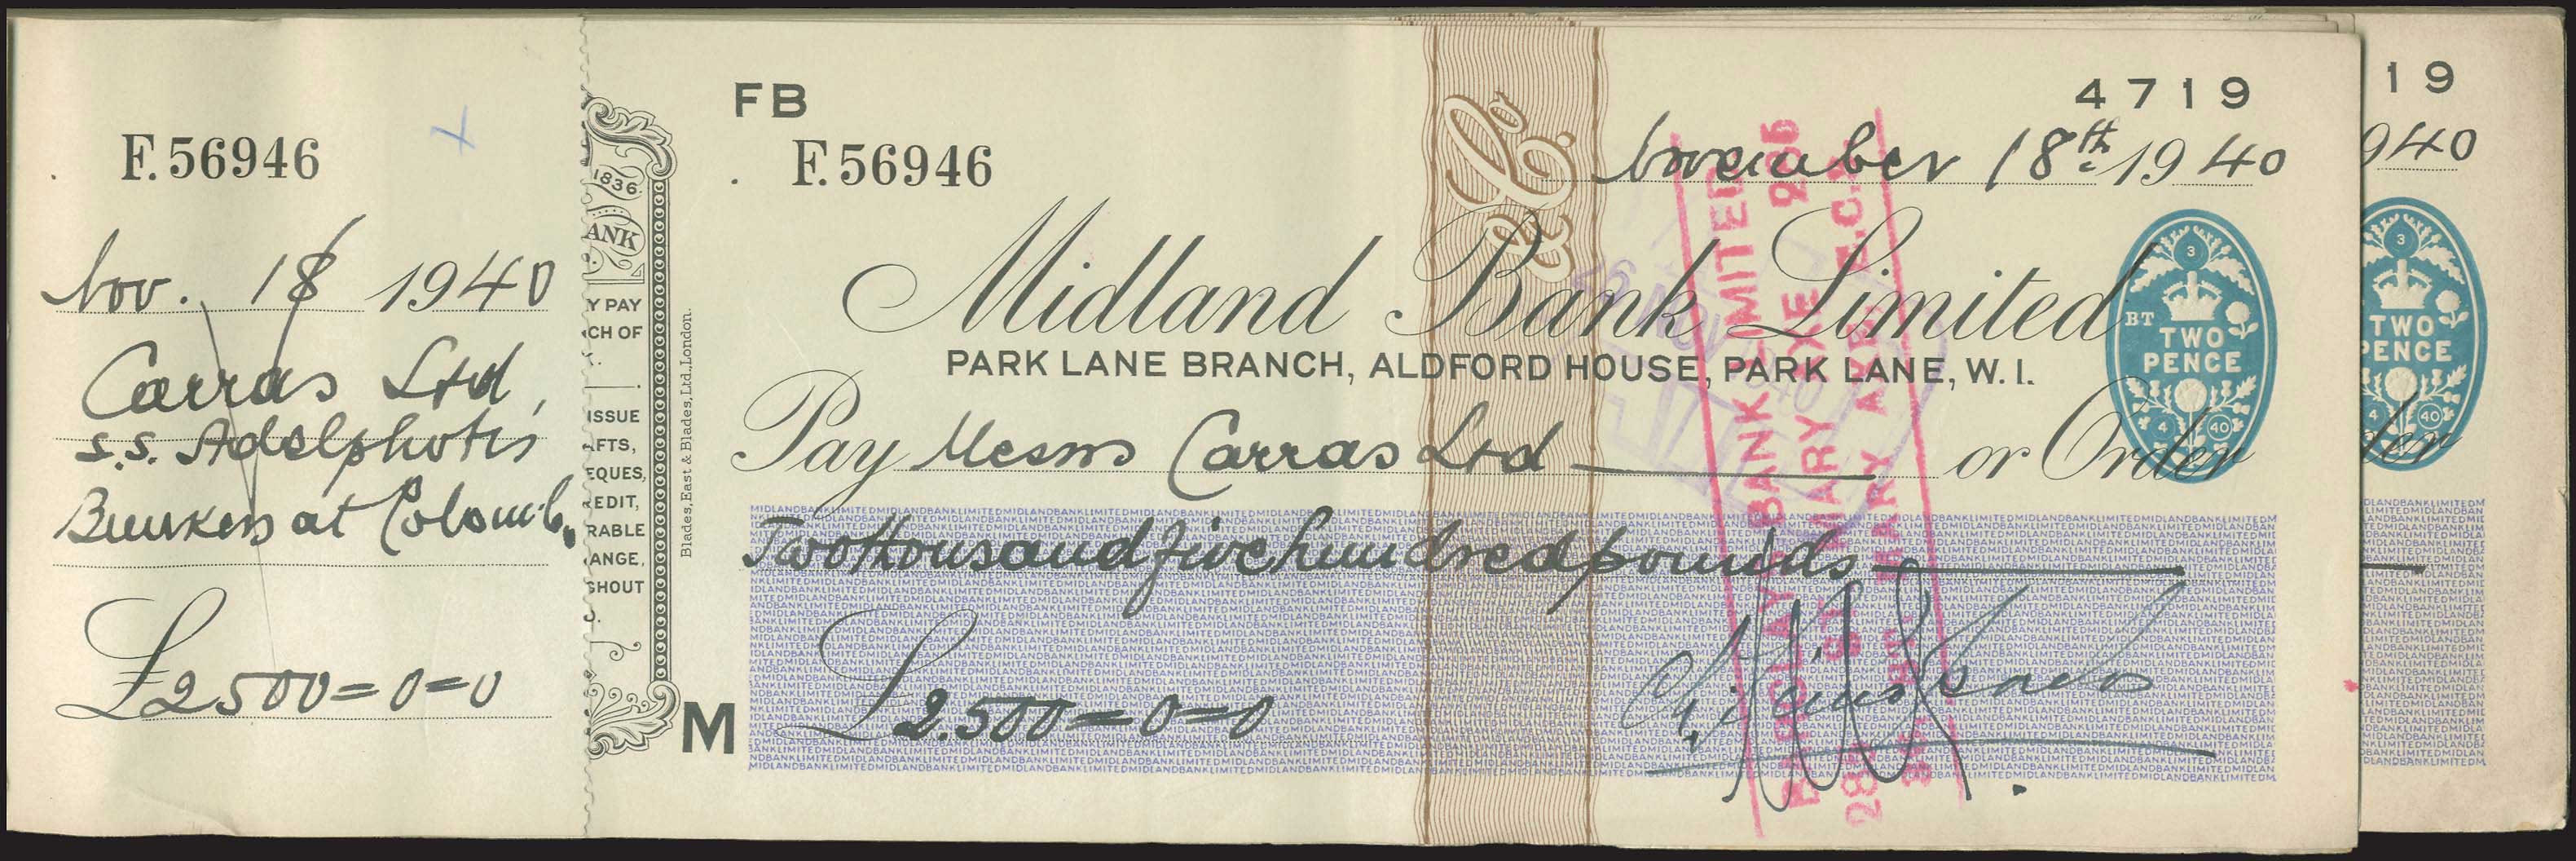 F.56946
Nov. 18 1940
Carras Ltd,
s.s. Adelphotis
Bunkers at Colombo
£2500=0=0
1836
ANK
Y PAY
CH OF
ISSUE
AFTS,
EQUES,
EDIT,
RABLE
ANGE,
GHOUT
Blades, East & Blades, Ltd., London.
FB
4719
F.56946
November 18th 1940
& Co.
Midland Bank Limited
PARK LANE BRANCH, ALDFORD HOUSE, PARK LANE, W.1.
BT
3
TWO
PENCE
4 40
Pay Messrs Carras Ltd or Order
Two thousand five hundred pounds
£2.500=0=0
M
BARCLAYS BANK LIMITED
ST. MARY AXE
19
940
3
TWO
PENCE
4 40
der